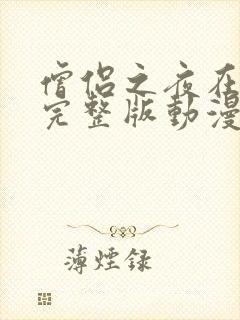 僧侶之夜在
完整版動漫
薄煙録